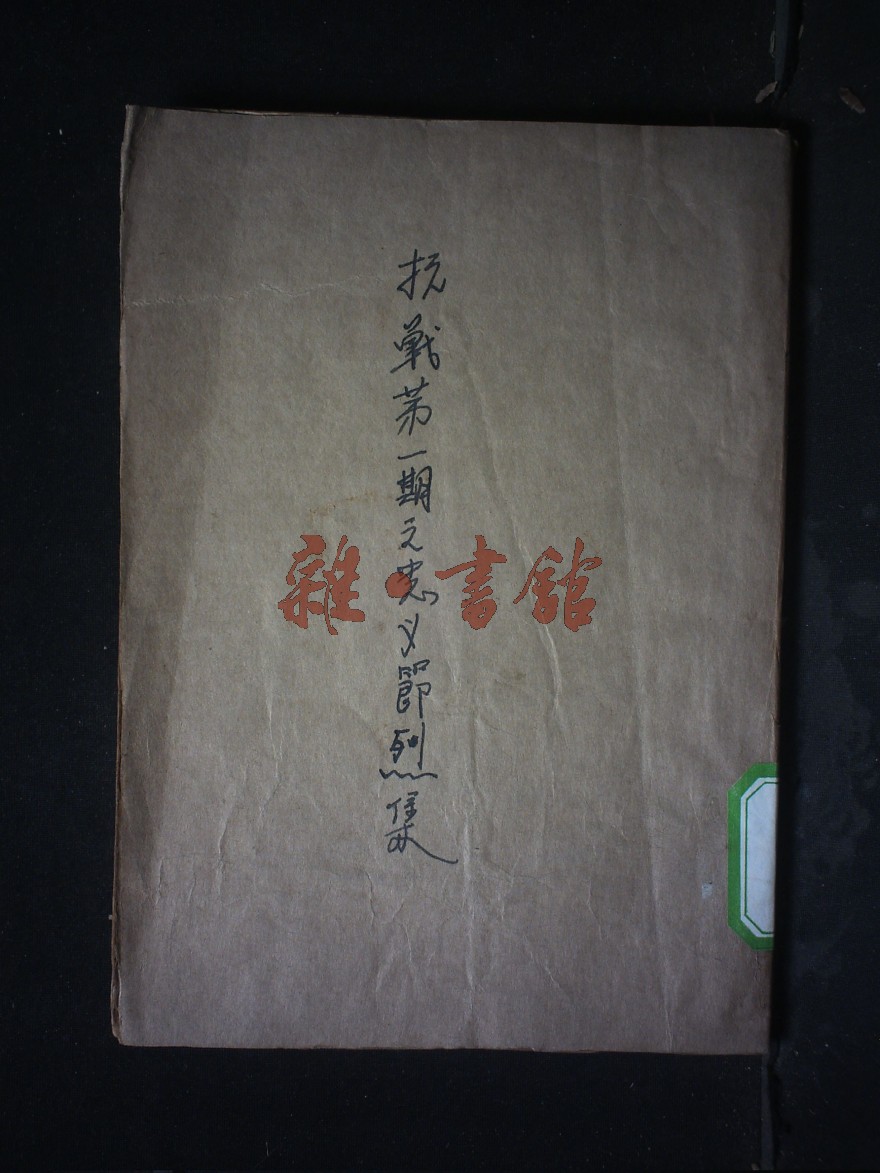 抗戰第一期之忠义節烈集
雜·書館